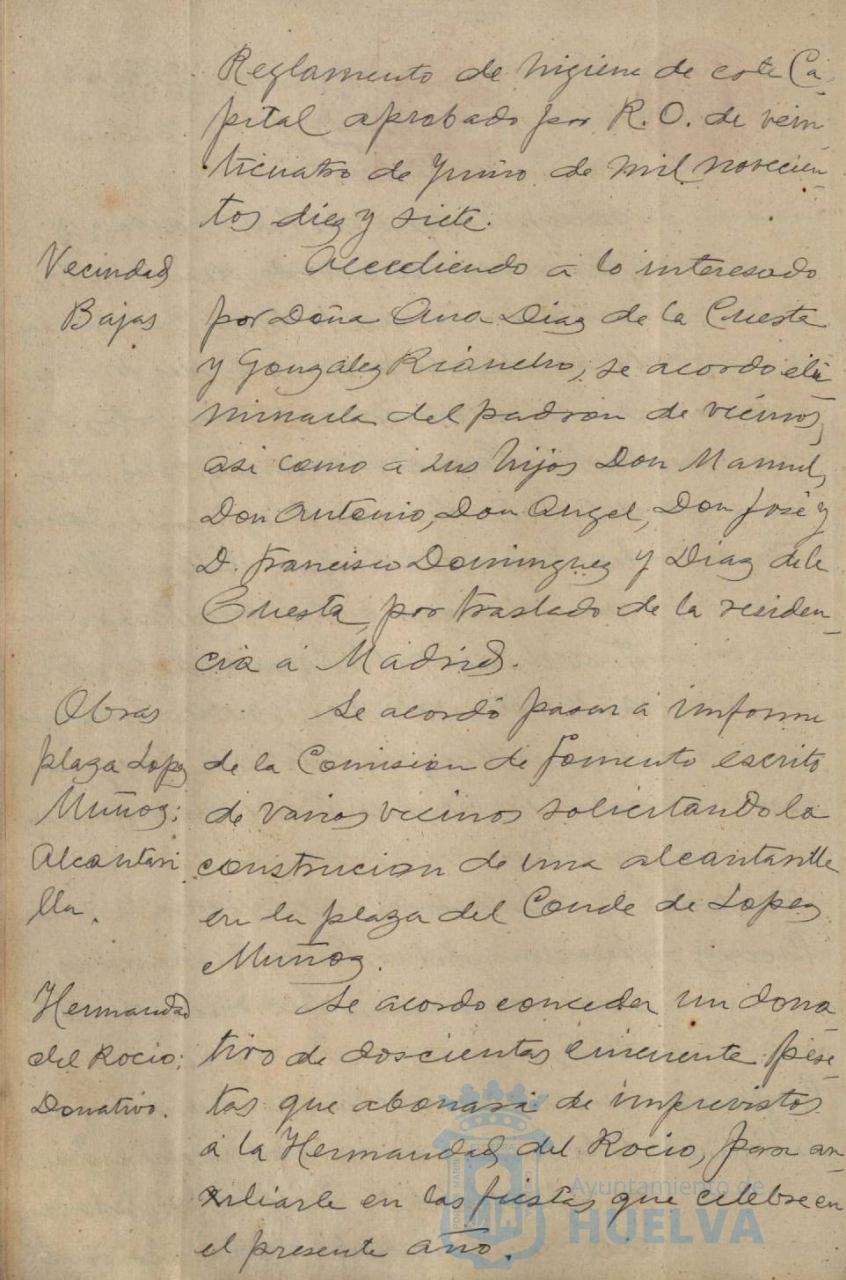 Reglamento de higiene de esta Ca-
pital aprobado por R. O. de vein
ticuatro de Junio de mil novecien-
tos diez y siete.
Vecindad
Bajas
Accediendo á lo interesado
por Doña Ana Diaz de la Cuesta
y Gonzalez Riancho, se acordo eli
minarla del padron de vecinos,
asi como á sus hijos Don Manuel,
Don Antonio, Don Angel, Don José y
D. Francisco Dominguez y Diaz de la
Cuesta, por traslado de la residen-
cia á Madrid.
Obras
plaza Lopez
Muñoz:
Alcantari
lla.
Se acordó pasar á informe
de la Comision de fomento escrito
de varios vecinos solicitando la
construcion de una alcantarilla
en la plaza del Conde de Lopez
Muñoz.
Hermandad
del Rocio:
Donativo.
Se acordo conceder un dona-
tivo de doscientas cincuenta pese-
tas que abonará de imprevistos
á la Hermandad del Rocio, para au
xiliarle en las fiestas que celebre en
el presente año.
Ayuntamiento de
HUELVA